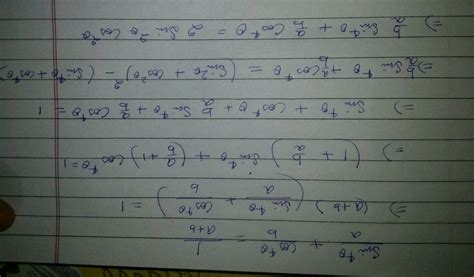 Sin⁴θ/a + Cos⁴θ/b = 1/(a+b)
⇒ (a+b) (Sin⁴θ/a + Cos⁴θ/b) = 1
⇒ (1 + b/a) Sin⁴θ + (a/b + 1) Cos⁴θ = 1
⇒ Sin⁴θ + Cos⁴θ + b/a Sin⁴θ + a/b Cos⁴θ = 1
⇒ b/a Sin⁴θ + a/b Cos⁴θ = (Sin²θ + Cos²θ)² - (Sin⁴θ + Cos⁴θ)
⇒ b/a Sin⁴θ + a/b Cos⁴θ = 2 Sin²θ Cos²θ